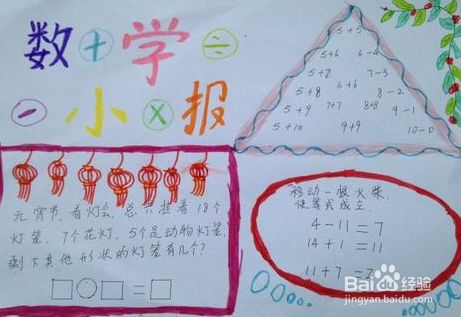 数 + 学 ÷
- 小 × 报
5+5
5+6 6-4
5+7 7-3
5+8 6+6 8-2
5+9 7+7 8+8 9-1
5+10 9+9 10-0
元宵节，看灯会，总共挂着18个
灯笼，7个花灯，5个是动物灯笼，
剩下其他形状的灯笼有几个？
□○□=□
移动一根火柴，
使等式成立.
4-11=7
14+1=11
11+7=2
Baidu经验
jingyan.baidu.com